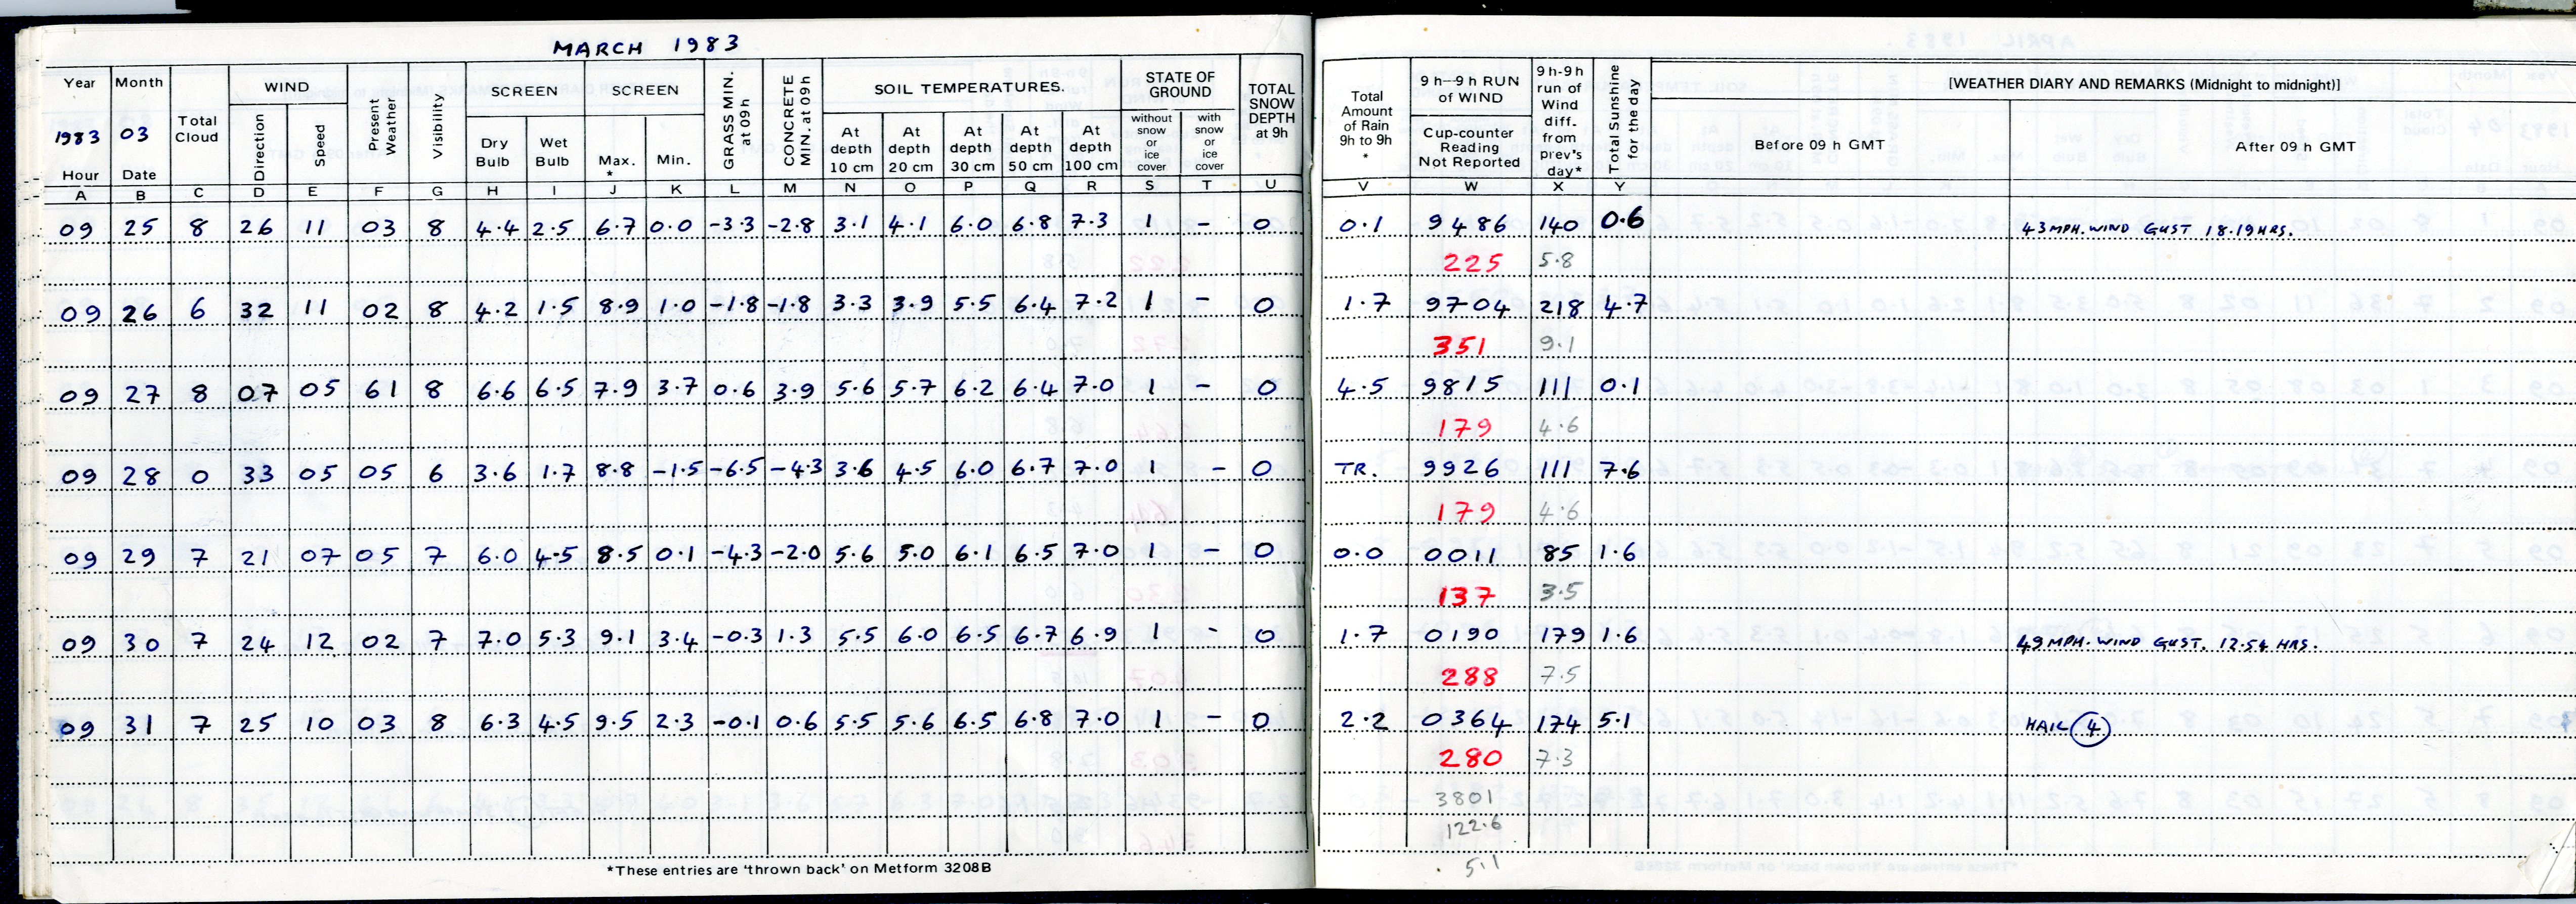 MARCH 1983
Year Month Total Cloud WIND Present Weather Visibility SCREEN SCREEN GRASS MIN. at 09h CONCRETE MIN. at 09h SOIL TEMPERATURES. STATE OF GROUND TOTAL SNOW DEPTH at 9h Total Amount of Rain 9h to 9h * 9 h—9 h RUN of WIND 9 h-9 h run of Wind diff. from prev's day* Total Sunshine for the day [WEATHER DIARY AND REMARKS (Midnight to midnight)]
1983 03 Direction Speed Dry Bulb Wet Bulb Max. * Min. At depth 10 cm At depth 20 cm At depth 30 cm At depth 50 cm At depth 100 cm without snow or ice cover with snow or ice cover Cup-counter Reading Not Reported Before 09 h GMT After 09 h GMT
Hour Date
A B C D E F G H I J K L M N O P Q R S T U V W X Y
09 25 8 26 11 03 8 4.4 2.5 6.7 0.0 -3.3 -2.8 3.1 4.1 6.0 6.8 7.3 1 - 0 0.1 9486 140 0.6 43 MPH. WIND GUST 18.19 HRS.
225 5.8
09 26 6 32 11 02 8 4.2 1.5 8.9 1.0 -1.8 -1.8 3.3 3.9 5.5 6.4 7.2 1 - 0 1.7 9704 218 4.7
351 9.1
09 27 8 07 05 61 8 6.6 6.5 7.9 3.7 0.6 3.9 5.6 5.7 6.2 6.4 7.0 1 - 0 4.5 9815 111 0.1
179 4.6
09 28 0 33 05 05 6 3.6 1.7 8.8 -1.5 -6.5 -4.3 3.6 4.5 6.0 6.7 7.0 1 - 0 TR. 9926 111 7.6
179 4.6
09 29 7 21 07 05 7 6.0 4.5 8.5 0.1 -4.3 -2.0 5.6 5.0 6.1 6.5 7.0 1 - 0 0.0 0011 85 1.6
137 3.5
09 30 7 24 12 02 7 7.0 5.3 9.1 3.4 -0.3 1.3 5.5 6.0 6.5 6.7 6.9 1 - 0 1.7 0190 179 1.6 49 MPH. WIND GUST. 12.54 HRS.
288 7.5
09 31 7 25 10 03 8 6.3 4.5 9.5 2.3 -0.1 0.6 5.5 5.6 6.5 6.8 7.0 1 - 0 2.2 0364 174 5.1 HAIL 4
280 7.3
3801
122.6
5.1
*These entries are 'thrown back' on Metform 3208B